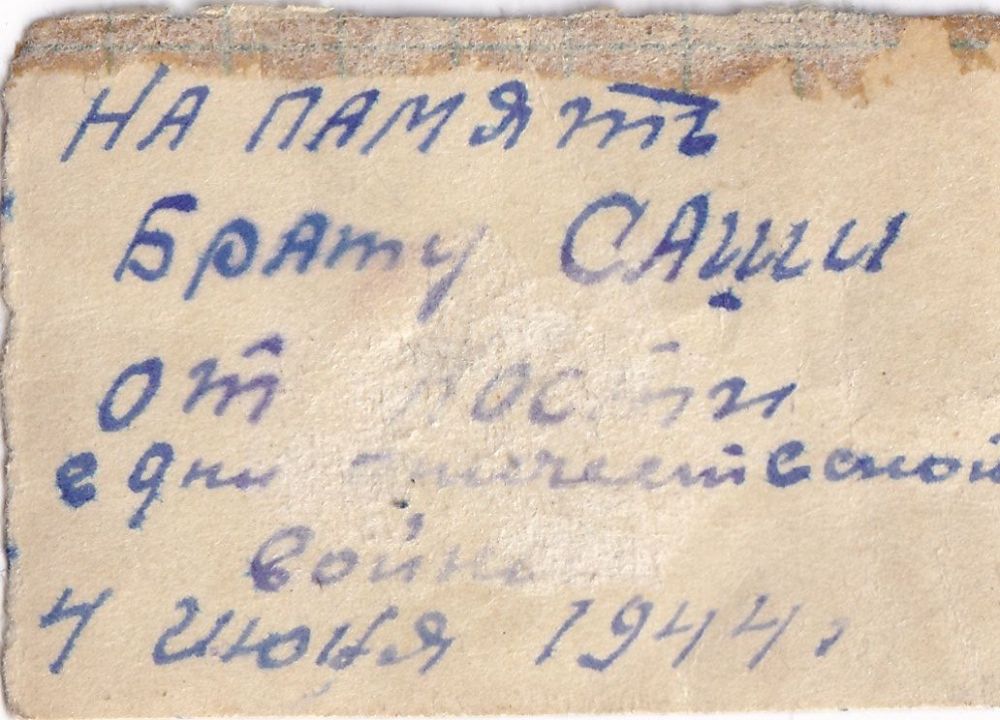 НА ПАМЯТЬ
Брату САШИ
от Кости
в дни отечественой
войны
4 июня 1944г